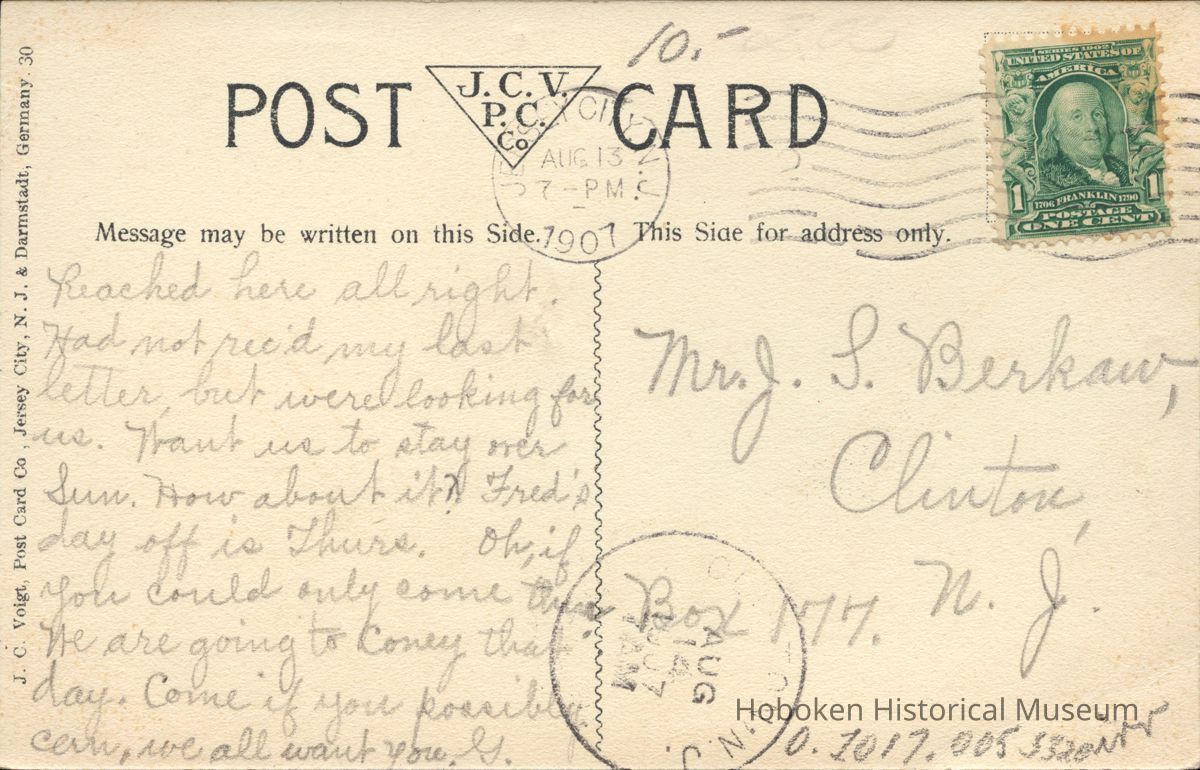 10.-
POST CARD
J. C. V.
P. C.
Co
JERSEY CITY, N.J.
AUG 13
7-PM
1907
SERIES 1902
UNITED STATES OF
AMERICA
1 1
1706 FRANKLIN 1790
POSTAGE
ONE CENT
J. C. Voigt, Post Card Co., Jersey City, N. J. & Darmstadt, Germany. 30
Message may be written on this Side.
This Side for address only.
Reached here all right.
Had not rec'd my last
letter, but were looking for
us. Want us to stay over
Sun. How about it? Fred's
day off is Thurs. Oh, if
you could only come then.
We are going to Coney that
day. Come if you possibly
can, we all want you. G.
Mr. J. S. Berkaw,
Clinton,
N. J.
Box 177.
AUG
14
1907
AM
N.J.
Hoboken Historical Museum
0. 1017. 005